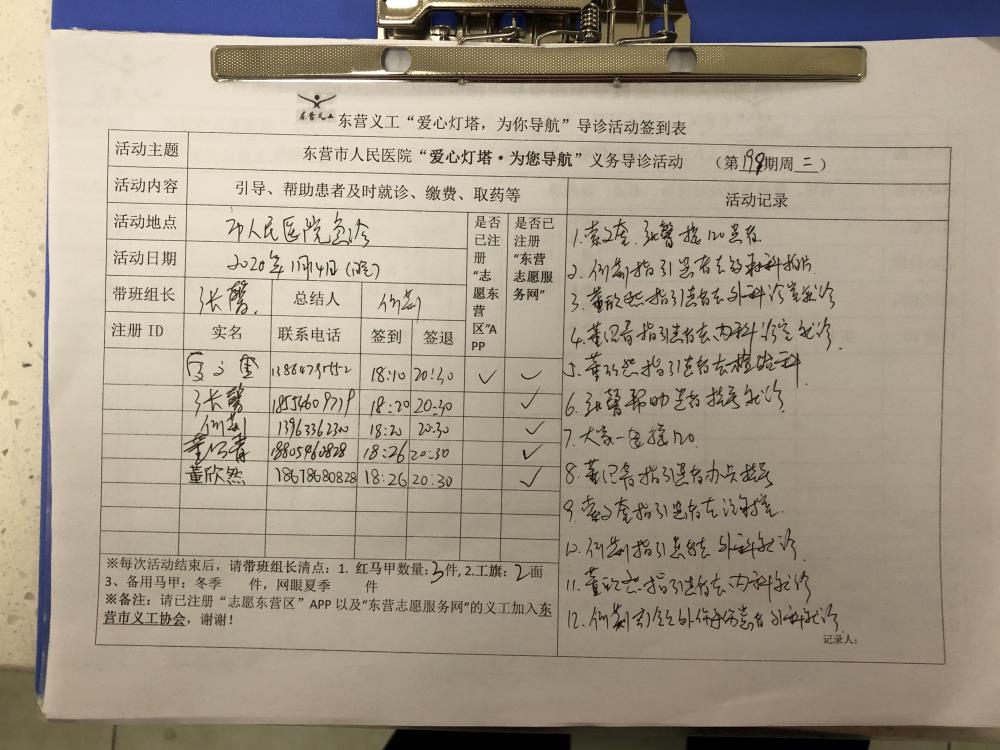 东营义工
东营义工“爱心灯塔，为你导航”导诊活动签到表
活动主题 东营市人民医院“爱心灯塔·为您导航”义务导诊活动 （第198期周二）
活动内容 引导、帮助患者及时就诊、缴费、取药等 活动记录
活动地点 市人民医院急诊 是否已注册“志愿东营区”APP 是否已注册“东营志愿服务网”
活动日期 2020年1月14日(晚)
带班组长 张馨 总结人
注册 ID 实名 联系电话 签到 签退
18:10 20:30 ✓ ✓
张馨 18554609719 18:20 20:30 ✓
13963362300 18:20 20:30 ✓
18805460828 18:26 20:30 ✓
董欣然 18678680828 18:26 20:30 ✓
※每次活动结束后，请带班组长清点：1. 红马甲数量:3件,2.工旗：2面
3、备用马甲：冬季 件，网眼夏季 件
※备注：请已注册“志愿东营区”APP 以及“东营志愿服务网”的义工加入东
营市义工协会，谢谢！
1. 张馨接120患者
2. 指引患者去放射科拍片
3. 董欣然指引患者去外科诊室就诊
4. 指引患者去内科诊室就诊
5. 董欣然指引患者去检验科
6. 张馨帮助患者挂号就诊
7. 大家一起接120
8. 指引患者办卡挂号
9. 指引患者去
10. 指引患者去外科就诊
11. 董欣然指引患者去内科就诊
12. 患者外科就诊
记录人：